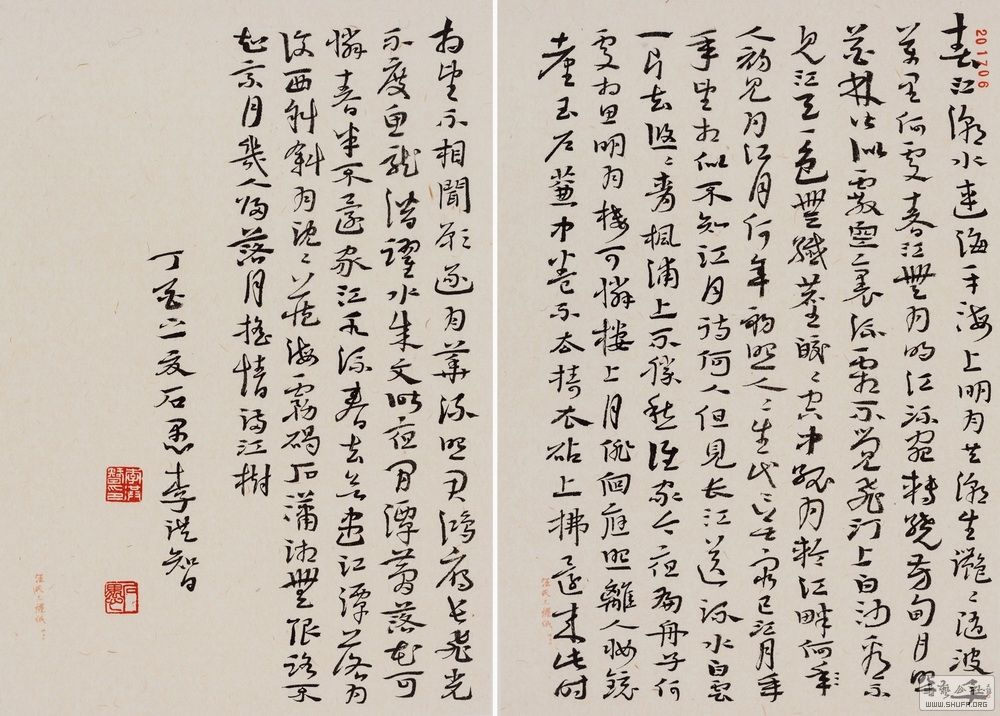 201706
春江潮水連海平海上明月共潮生灩〻隨波千
萬里何處春江無月明江流宛轉繞芳甸月照
花林皆似霰空裏流霜不覺飛汀上白沙看不
見江天一色無纖塵皎〻空中孤月輪江畔何年
人初見月江月何年初照人〻生代〻無窮已江月年
年望相似不知江月待何人但見長江送流水白雲
一片去悠〻青楓浦上不勝愁誰家今夜扁舟子何
處相思明月樓可憐樓上月徘徊應照離人妝鏡
臺玉戶簾中卷不去擣衣砧上拂還來此時
相望不相聞願逐月華流照君鴻雁長飛光
不度魚龍潛躍水成文昨夜閒潭夢落花可
憐春半不還家江水流春去欲盡江潭落月
復西斜斜月沉〻藏海霧碣石瀟湘無限路不
知乘月幾人歸落月搖情滿江樹
丁酉之夏石愚李洪智
李洪智印
石愚
WWW.SHUFA.ORG